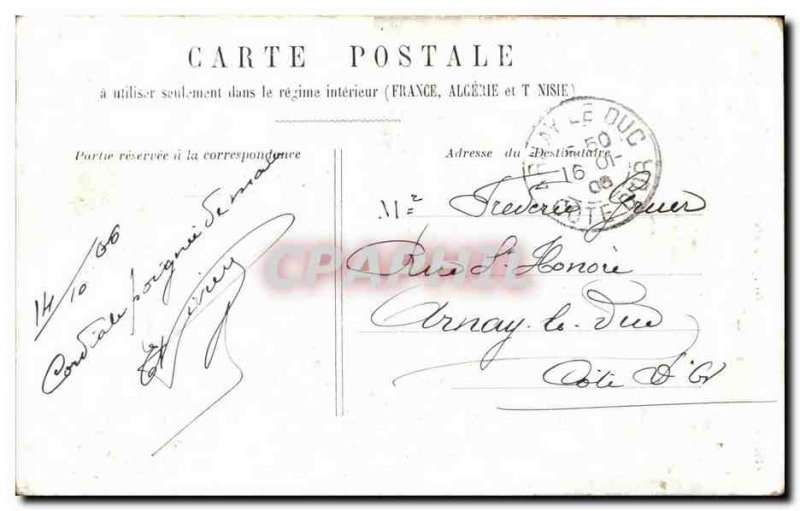 CARTE POSTALE
à utiliser seulement dans le régime intérieur (FRANCE, ALGÉRIE et T NISIE)
Partie réservée à la correspondance
14/10 06
Cordiale poignée de main
Adresse du Destinataire
Mr Frederic
Rue St Honoré
Arnay-le-Duc
Côte d'Or
AY LE DUC
16
06
COTE D'OR
CPAPHIL